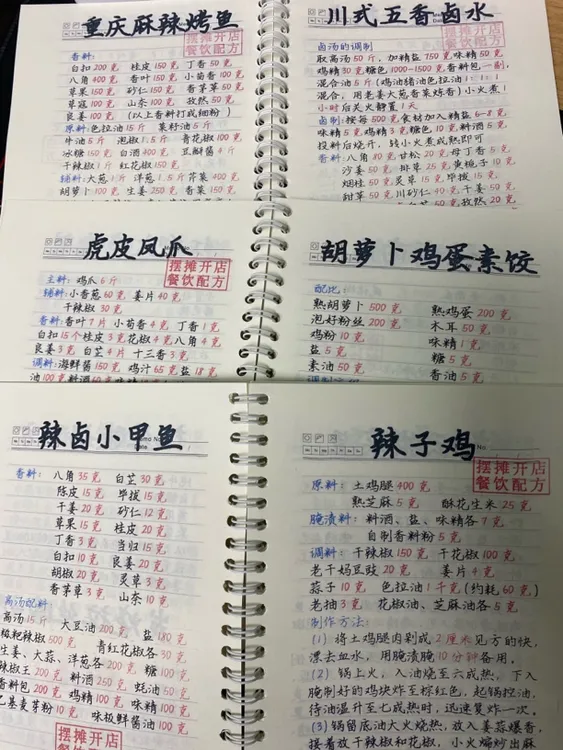 重庆麻辣烤鱼
摆摊开店
餐饮配方
香料:
白扣 200 克 桂皮 150 克 丁香 50 克
八角 400 克 香叶 150 克 小茴香 100 克
草果 150 克 砂仁 150 克 香茅草 50 克
草寇 100 克 山奈 100 克 孜然 50 克
良姜 100 克 (以上香料打成细粉)
原料:色拉油 15 斤 菜籽油 5 斤
牛油 5 斤 泡椒 1.5 斤 青花椒 100 克
冰糖 150 克 白酒 400 克 豆瓣酱 4 斤
干辣椒 1 斤 红花椒 150 克
辅料:大葱 1 斤 洋葱 1.5 斤 芹菜 400 克
胡萝卜 100 克 生姜 250 克 香菜 150 克
川式五香卤水
摆摊开店
餐饮配方
卤汤的调制
取高汤 50 斤,加精盐 750 克味精 50 克
鸡精 30 克糖色 1000-1500 克香料包一副,
混合油 5 斤(鸡油猪油色拉油 1:1:1
混合,用老姜大葱香菜炼香)小火煮 1
小时后关火静置 1 天
卤制:按每 500 克食材加入精盐 6-8 克
味精 5 克鸡精 3 克糖色 10 克料酒 5 克
投料后烧开,转小火煮成熟即可
香料:八角 80 克甘松 20 克 母丁香 5 克
沙姜 50 克 排草 25 克黄栀子 10 克
烟桂 50 克灵草 15 克毕拔 15 克
甜草 50 克川砂仁 40 克干姜 50 克
白芷 50 克 孜然 20 克
虎皮凤爪
摆摊开店
餐饮配方
主料:鸡爪 6 斤
辅料:小香葱 60 克 姜片 40 克
干辣椒 30 克
香料:香叶 7 片 小茴香 4 克 丁香 1 克
白扣 15 个桂皮 3 克花椒 4 克八角 4 克
良姜 3 克 白芷 4 片 十三香 3 克
调料:海鲜酱 150 克 鸡汁 65 克 盐 18 克
胡萝卜鸡蛋素饺
配比:
熟胡萝卜 500 克 熟鸡蛋 200 克
泡好粉丝 200 克 木耳 50 克
鸡粉 10 克 味精 1 克
盐 5 克 糖 5 克
素油 50 克 香油 5 克
辣卤小甲鱼
香料: 八角 35 克 白芷 30 克
陈皮 15 克 毕拔 15 克
干姜 20 克 砂仁 12 克
草果 15 克 桂皮 20 克
丁香 3 克 当归 15 克
白扣 10 克 良姜 20 克
胡椒 20 克 灵草 3 克
香茅草 3 克 山奈 10 克
高汤配料:
高汤 15 斤 大豆油 200 克 盐 180 克
糍粑辣椒 600 克 青红花椒各 30 克
生姜、大蒜、洋葱各 200 克 糖 100 克
辣椒王 200 克 料酒 250 克 蚝油 50 克
香料包 200 克 鸡精 100 克 味精 100 克
乙基麦芽粉 10 克 味极鲜酱油 100 克
摆摊开店
餐饮配方
辣子鸡
摆摊开店
餐饮配方
原料:土鸡腿 400 克
熟芝麻 5 克 酥花生米 25 克
腌渍料:料酒、盐、味精各 7 克
自制香料粉 5 克
调料:干辣椒 150 克 干花椒 100 克
老干妈豆豉 20 克 姜片 4 克
蒜子 10 克 色拉油 1 千克(约耗 60 克)
老抽 3 克 花椒油、芝麻油各 5 克
制作方法:
(1) 将土鸡腿肉剁成 2 厘米见方的块,
漂去血水,用腌渍腌 10 分钟备用。
(2) 锅上火,入油烧至六成热,下入
腌制好的鸡块炸至棕红色,起锅控油,
待油温升至七成热时,迅速复炸一次。
(3)锅留底油大火烧热,放入姜蒜爆香,
接着放干辣椒和花椒,小火煸炒出麻